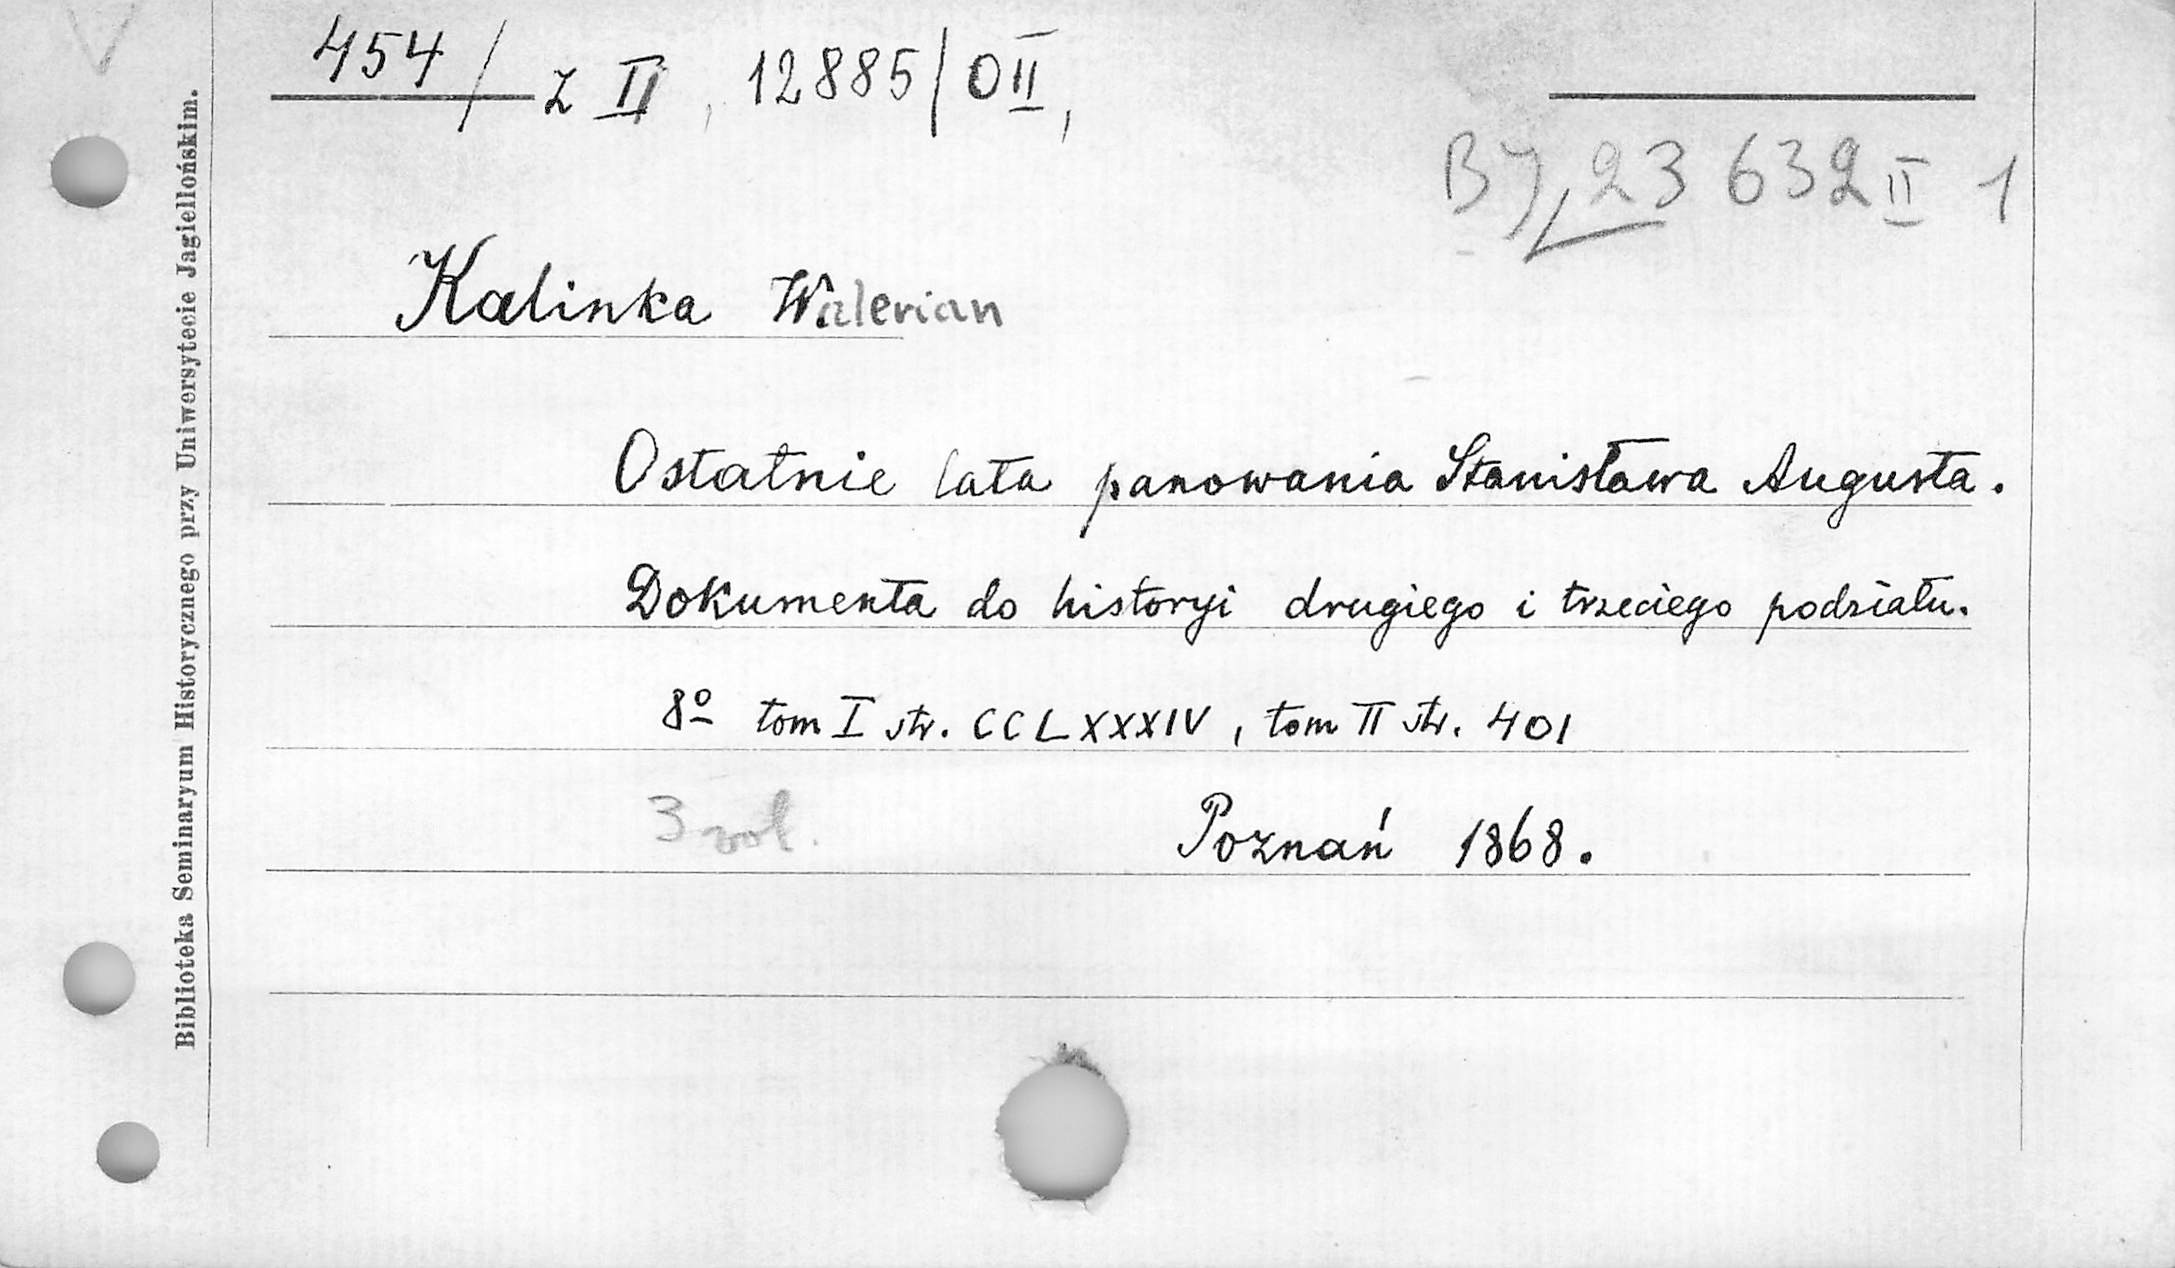 454/ z II, 12885/OII,
BJ, 23 632 II 1
Kalinka Walerian
Ostatnie lata panowania Stanisława Augusta.
Dokumenta do historyi drugiego i trzeciego podziału.
8º tom I str. CCLXXXIV, tom II str. 401
3 vol.
Poznań 1868.
Biblioteka Seminaryum Historycznego przy Uniwersytecie Jagiellońskim.